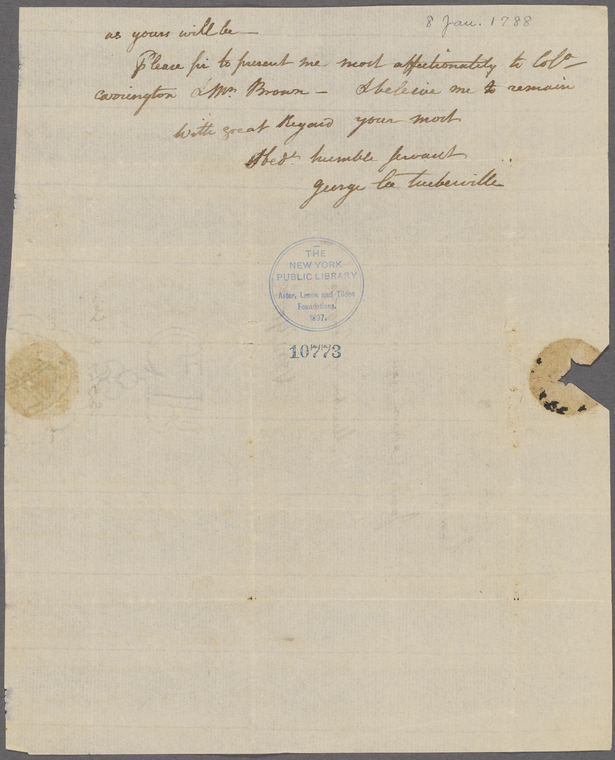 8 Jan. 1788
as yours will be —
Please sir to present me most affectionately to Colo
Carrington & Mr. Brown — & beleive me to remain
With great Regard your most
Obedt humble servant
George Lee Turberville
THE
NEW YORK
PUBLIC LIBRARY
Astor, Lenox and Tilden
Foundations.
1897.
10773